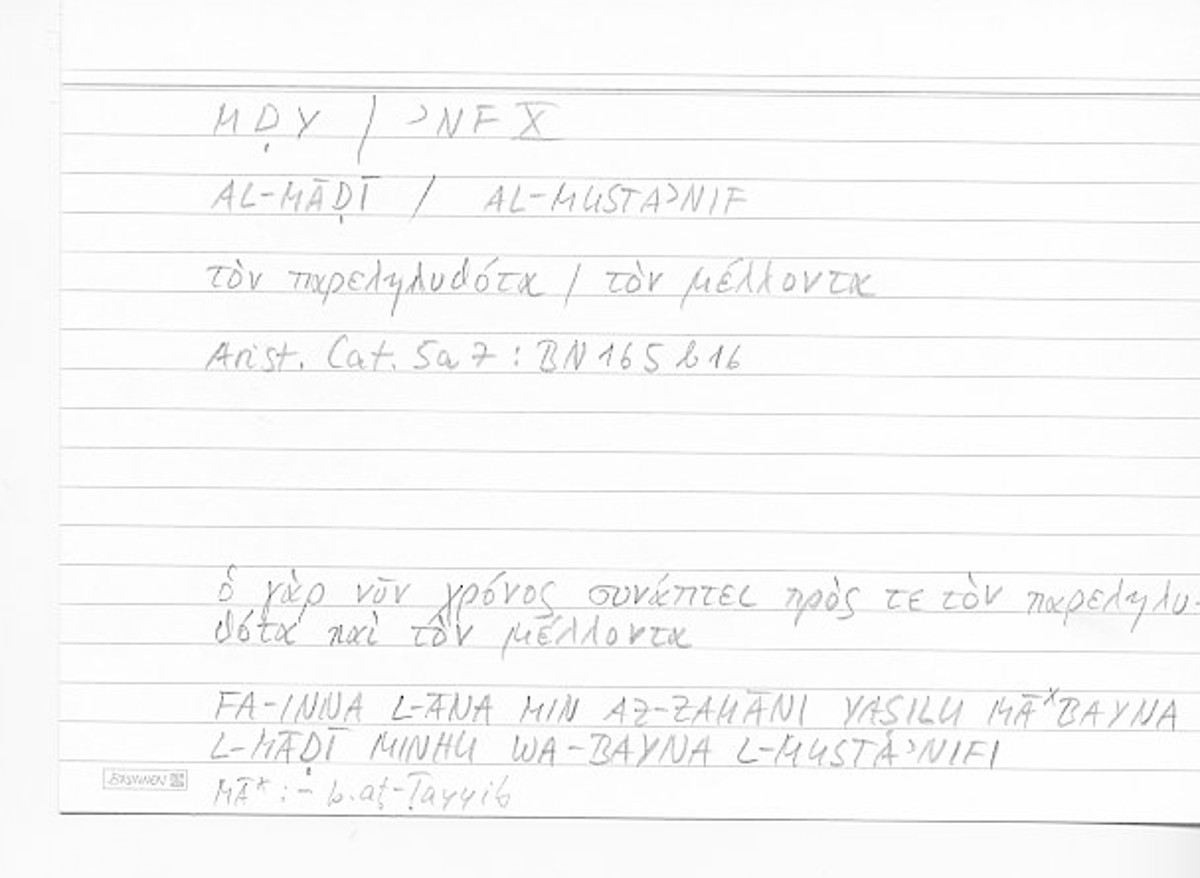 MḌY / ʾNF X
AL-MĀḌĪ / AL-MUSTAʾNIF
τὸν παρεληλυθότα / τὸν μέλλοντα
Arist. Cat. 5a7 : BN 165b16
ὁ γὰρ νῦν χρόνος συνάπτει πρὸς τε τὸν παρεληλυ-
θότα καὶ τὸν μέλλοντα
FA-INNA L-ĀNA MIN AZ-ZAMĀNI YAṢILU MĀ* BAYNA
L-MĀḌĪ MINHU WA-BAYNA L-MUSTAʾNIFI
BRUNNEN
MĀ* : – b. aṭ-Ṭayyib